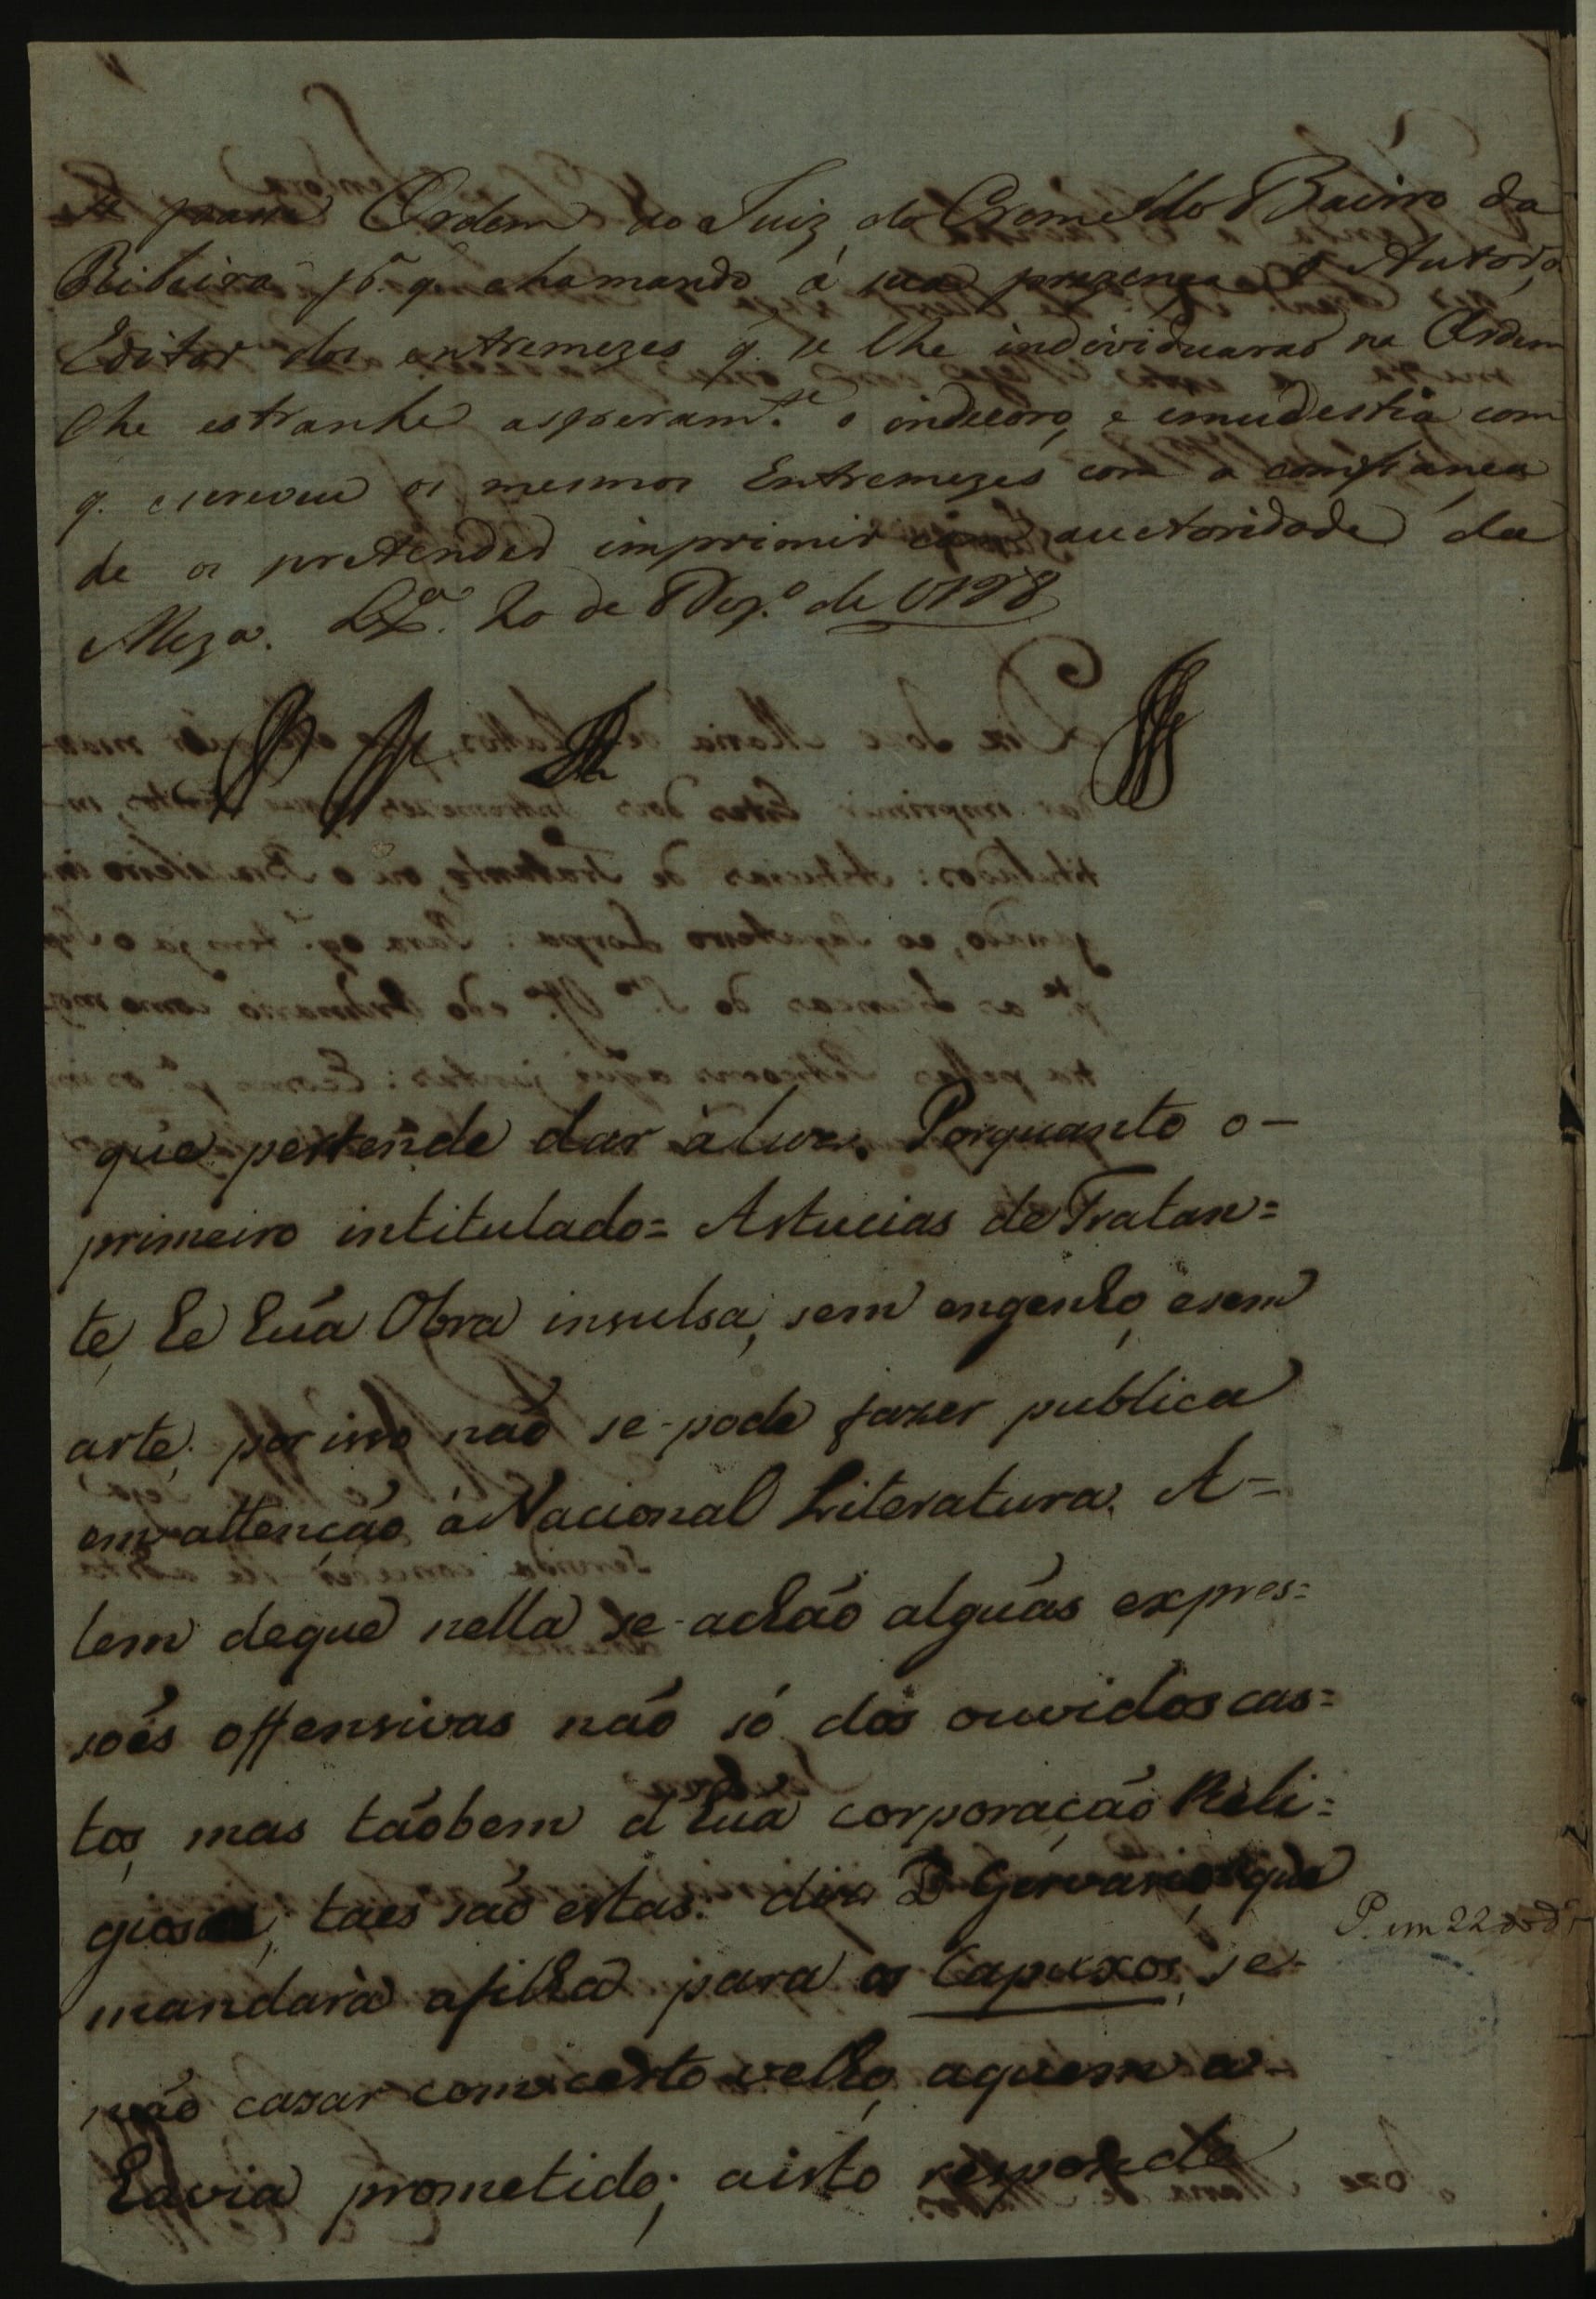 Se passe Ordem ao Juiz do Crime do Bairro da
Ribeira pª. q. chamando á sua prezença o Autor, o
Editor dos entremezes q. se lhe individuaraõ na Ordem
lhe estranhe asperam.te o indecoro, e imudestia com
q. escreveu os mesmos Entremezes com a confiança
de os pretender imprimir com auctoridade da
Meza. Lxª. 20 de Dezº. de 1798
que pertende dar à luz. Porquanto o-
primeiro intitulado= Astucias de Tratan=
te, he huã Obra insulsa, sem engenho, e sem
arte; por isso naõ se-pode fazer publica
em attençaõ á Nacional Literatura. A-
lem deque nella se-achaõ alguãs expres=
soẽs offensivas naõ só dos ouvidos cas=
tos, mas taõbem d'huã corporaçaõ Reli=
giosa; taes saõ estas: diz D. Gervasio, que
mandarà afilha para os Capuxos, se-
naõ casar com certo velho, aquem a-
havia prometido; aisto responde
P. em 22 do dº